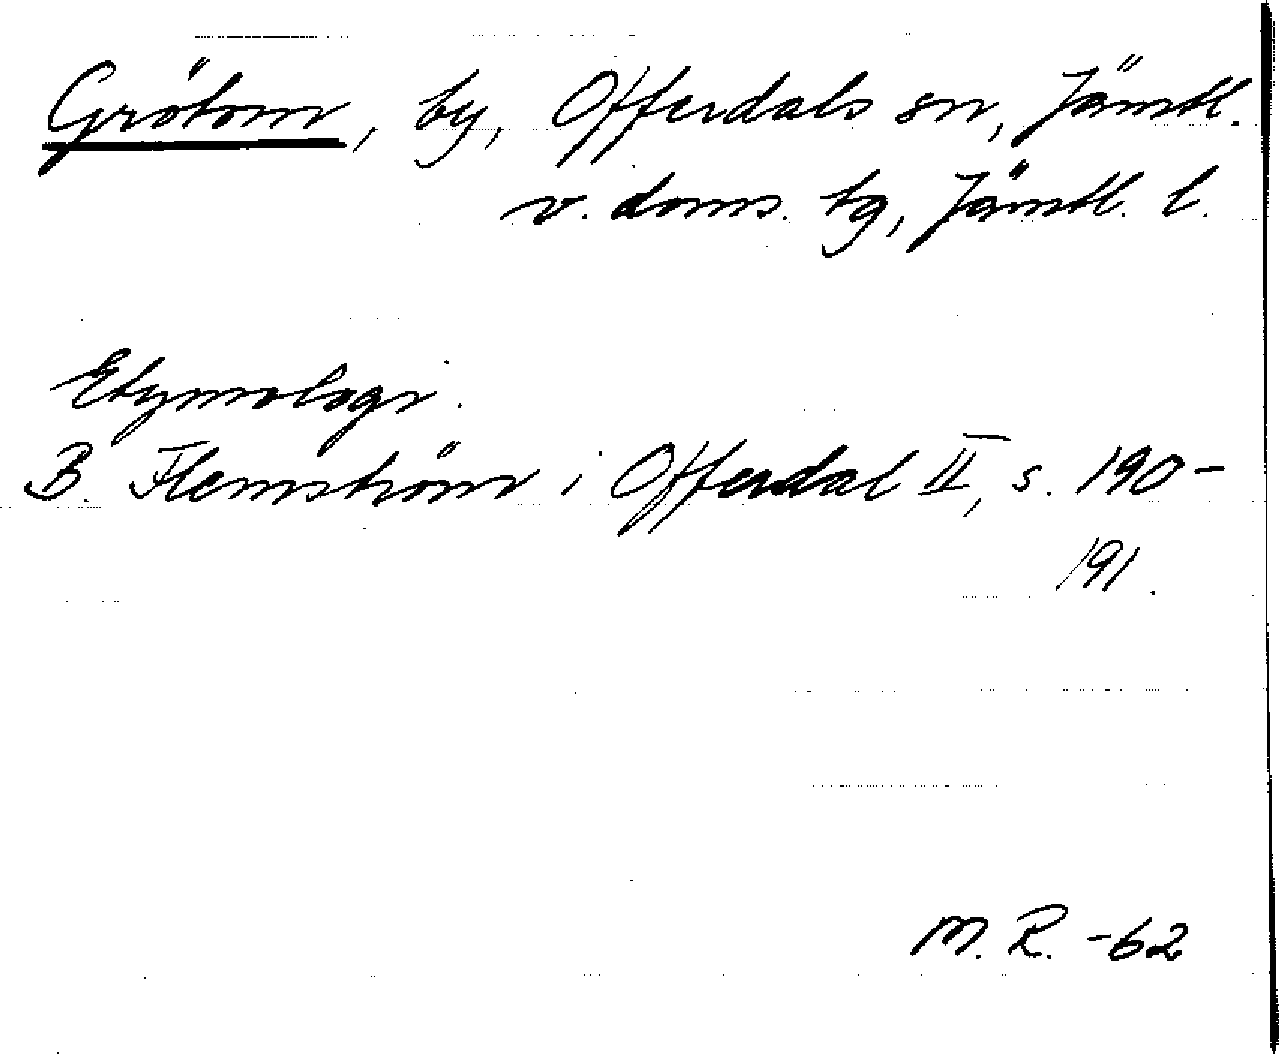 Grötom, by, Offerdals sn, Jämtl.
v. doms. tg, Jämtl. l.
Etymologi.
B. Flemström i Offerdal II, s. 190-
191.
M. R. -62